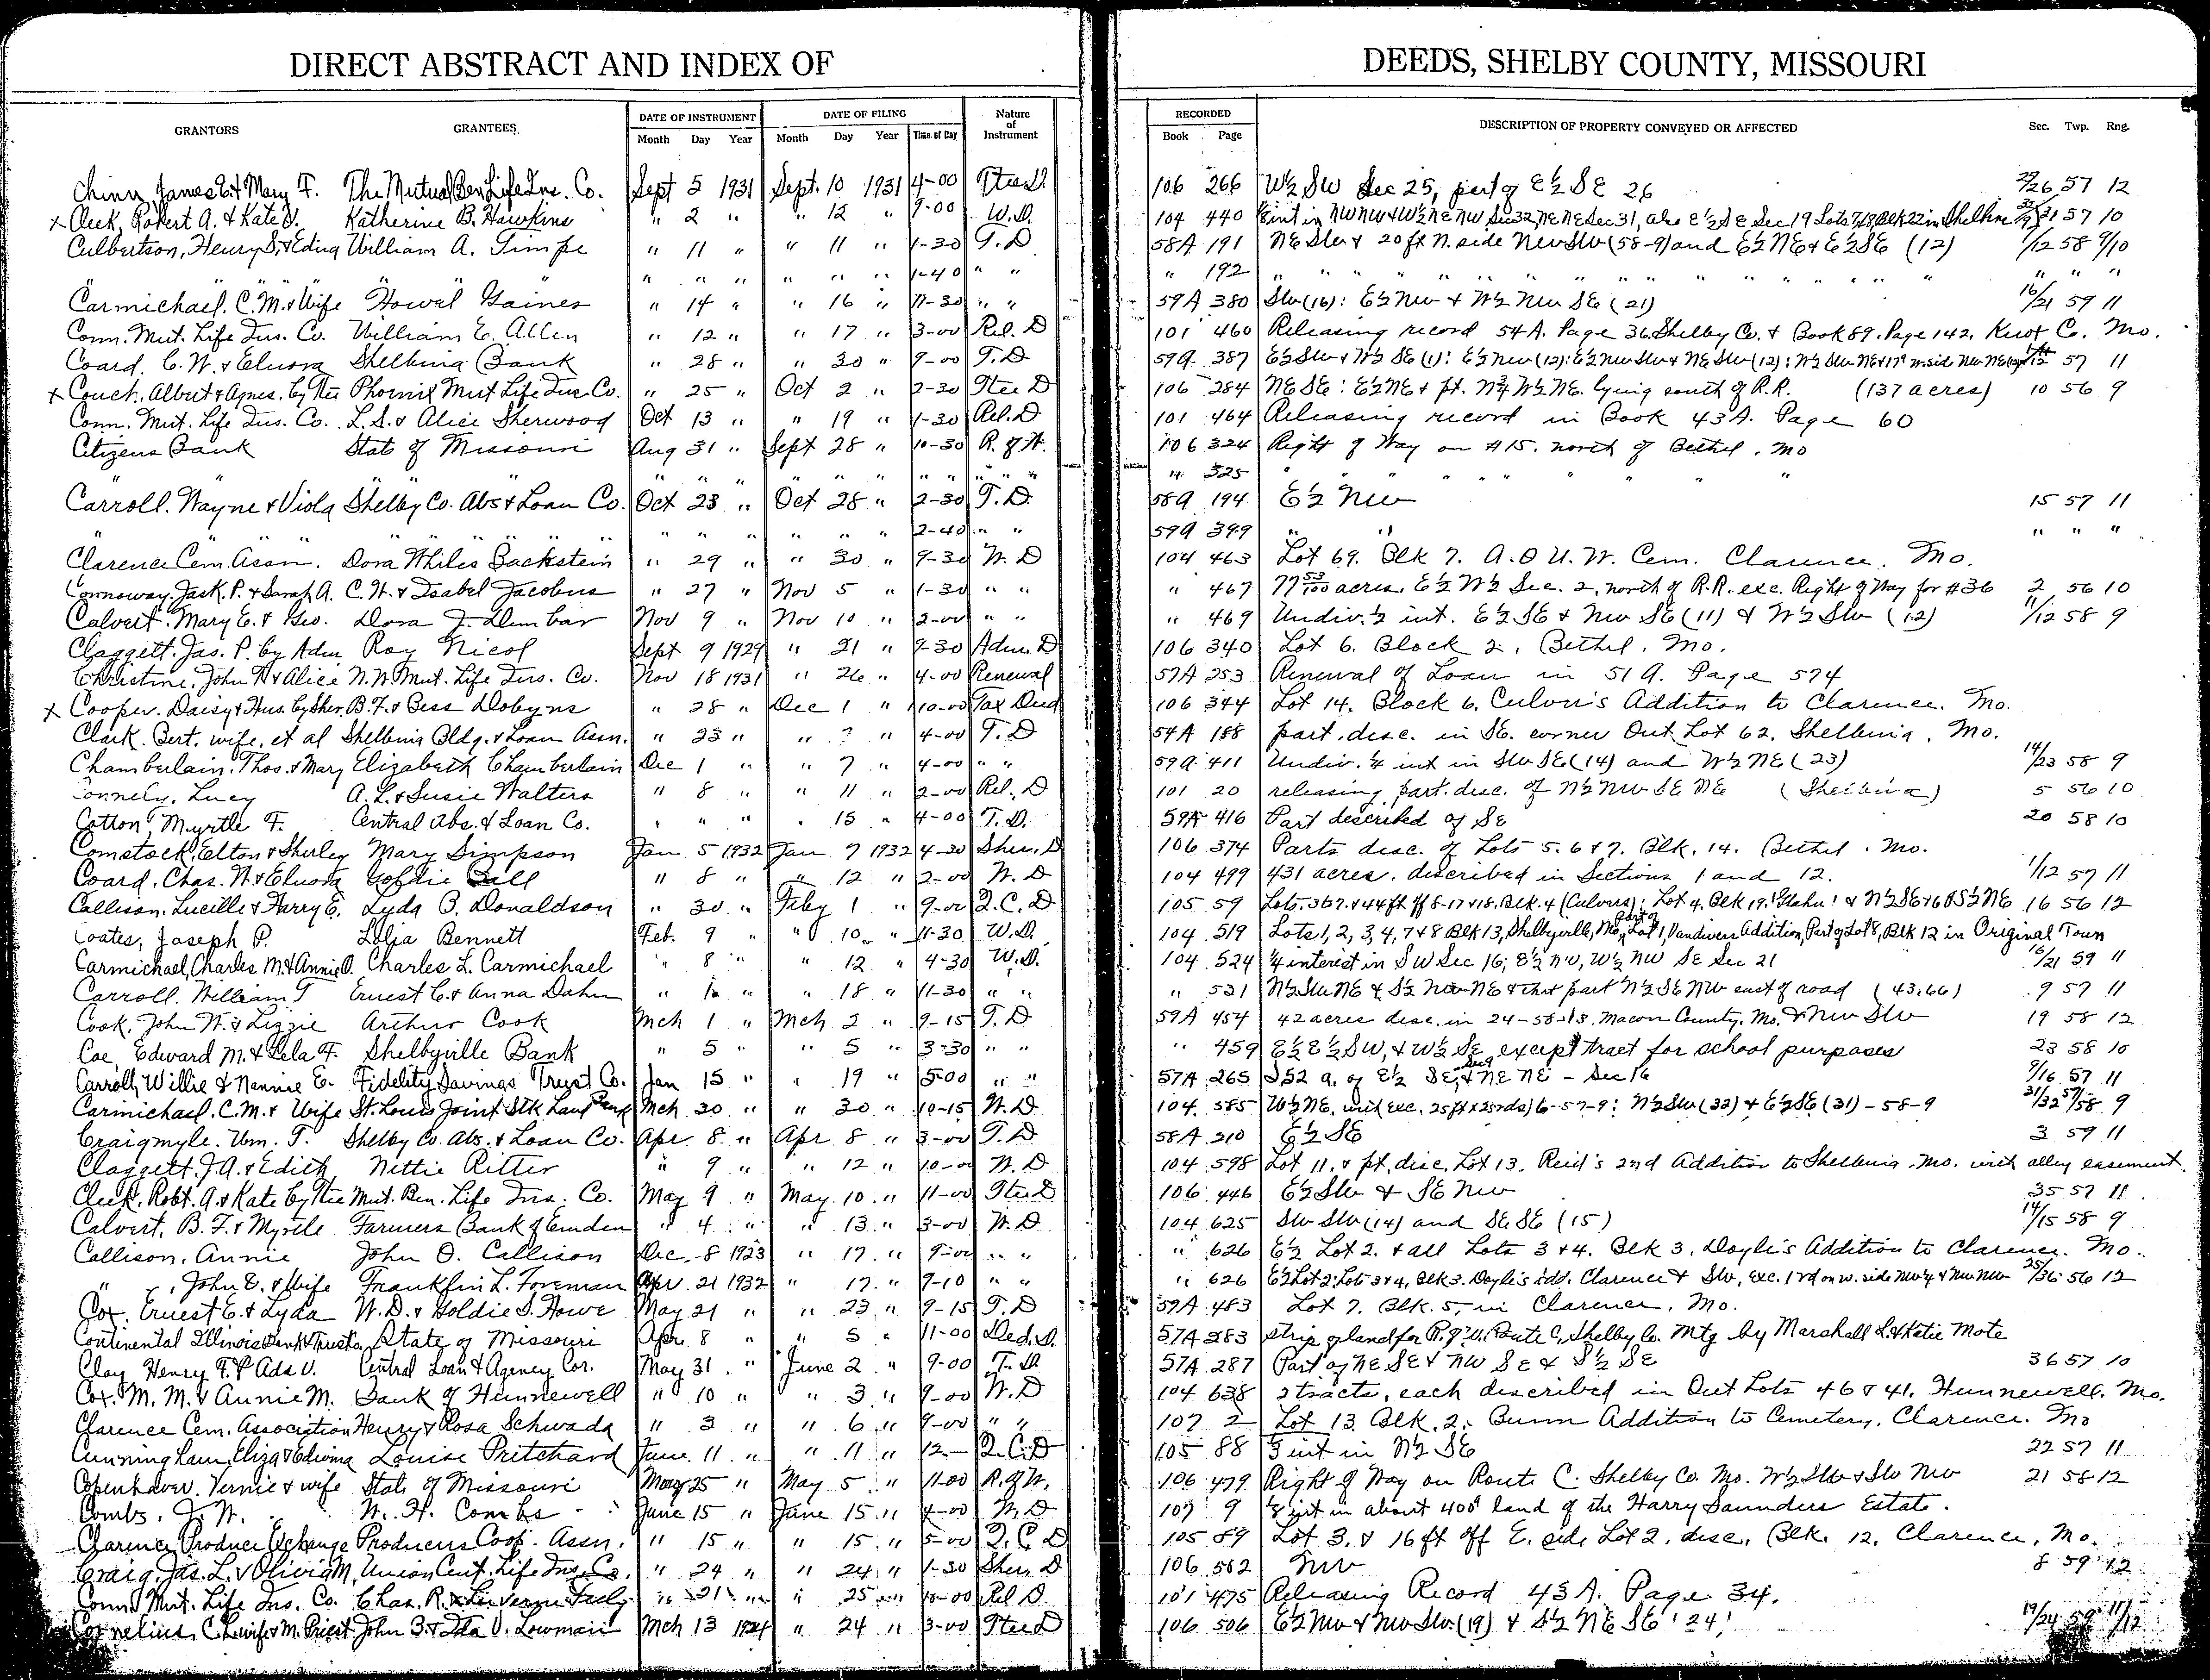 DIRECT ABSTRACT AND INDEX OF DEEDS, SHELBY COUNTY, MISSOURI
GRANTORS GRANTEES DATE OF INSTRUMENT Month Day Year DATE OF FILING Month Day Year Time of Day Nature of Instrument RECORDED Book Page DESCRIPTION OF PROPERTY CONVEYED OR AFFECTED Sec. Twp. Rng.
Chinn, James E. & Mary F. The Mutual Ben Life Ins. Co. Sept 5 1931 Sept. 10 1931 4-00 Ttee D. 106 266 W½ SW Sec 25, part of E½ SE 26 57 12
x Cleek, Robert A. & Kate D. Katherine B. Hawkins " 2 " " 12 " 9-00 W.D. 104 440 int in NW NW & W½ NE NW Sec 32, NE NE Sec 31, also E½ SE Sec 19 Lots 7/8 Blk 22 in Shelbina 57 10
Culbertson, Henry S. & Edna William A. Timpe " 11 " " 11 " 1-30 T.D 58A 191 NE SW & 20 ft N. side NW SW (58-9) and E½ NE & E½ SE (12) 1/12 58 9/10
" " " " " " " " 1-40 " " " 192 " " " " " " " "
Carmichael. C.M. & Wife Howal Gaines " 14 " " 16 " 11-30 " " 59A 380 SW (16): E½ NW & W½ NW SE (21) 16/21 59 11
Conn. Mut. Life Ins. Co. William E. Allen " 12 " " 17 " 3-00 Rel. D 101 460 Releasing record 54 A. Page 36. Shelby Co. & Book 89. Page 142. Knox Co. Mo.
Coard. C.W. & Elnora Shelbina Bank " 28 " " 30 " 9-00 T.D 59A 387 E½ SW & W½ SE (1): E½ NW (12): E½ NW SW & NE SW (12): W½ SW NE & 17ᵃ W side NW NE 1/12 57 11
x Couch. Albert & Agnes. by Ttee Phoenix Mut Life Ins. Co. " 25 " Oct 2 " 2-30 Ttee D 106 284 NE SE: E½ NE & pt. N¾ W½ NE. lying south of R.R. (137 acres) 10 56 9
Conn. Mut. Life Ins. Co. L.S. & Alice Sherwood Oct 13 " " 19 " 1-30 Rel. D 101 464 Releasing record in Book 43 A. Page 60
Citizens Bank State of Missouri Aug 31 " Sept 28 " 10-30 R. of W. 106 324 Right of Way on #15. north of Bethel. Mo
" " " " " " " " " " " " " 325 " " " " " "
Carroll. Wayne & Viola Shelby Co. Abs & Loan Co. Oct 23 " Oct 28 " 2-30 T.D. 58A 194 E½ NW 15 57 11
" " " " " " " " " " 2-40 " " 59A 399 " " " " "
Clarence Cem. Assn. Dora Whiles Backstein " 29 " " 30 " 9-30 W.D 104 463 Lot 69. Blk 7. A.O.U.W. Cem. Clarence. Mo.
Connoway. Jack. P. & Sarah A. C.H. & Isabel Jacobus " 27 " Nov 5 " 1-30 " " " 467 77 53/100 acres. E½ W½ Sec. 2. north of R.R. exc. Right of Way for #36 2 56 10
Calvert. Mary E. & Geo. Dora J. Dunbar Nov 9 " Nov 10 " 2-00 " " " 469 Undiv. ½ int. E½ SE & NW SE (11) & W½ SW (12) 11/12 58 9
Claggett. Jas. P. by Adm Roy Nicol Sept 9 1929 " 21 " 9-30 Adm. D 106 340 Lot 6. Block 2. Bethel. Mo.
Christine. John W & Alice N.W. Mut. Life Ins. Co. Nov 18 1931 " 26 " 4-00 Renewal 57A 253 Renewal of Loan in 51 A. Page 574
x Cooper. Daisy & Hus. by Sher. B.F. & Bess Dobyns " 28 " Dec 1 " 10-00 Tax Deed 106 344 Lot 14. Block 6. Culver's Addition to Clarence. Mo.
Clark. Bert. wife. et al Shelbina Bldg. & Loan Assn. " 23 " " ? " 4-00 T.D 54A 188 part. desc. in SE. corner Out Lot 62. Shelbina. Mo.
Chamberlain. Thos. & Mary Elizabeth Chamberlain Dec 1 " " 7 " 4-00 " " 59A 411 Undiv. ¼ int in SW SE (14) and W½ NE (23) 14/23 58 9
Connely. Lucy A.L. & Susie Walters " 8 " " 11 " 2-00 Rel. D 101 20 releasing part. desc. of N½ NW SE NE (Shelbina) 5 56 10
Cotton, Myrtle F. Central Abs. & Loan Co. " " " " 15 " 4-00 T.D. 59A 416 Part described of SE 20 58 10
Comstock, Elton & Shirley Mary Simpson Jan 5 1932 Jan 7 1932 4-30 Sher. D 106 374 Parts desc. of Lots 5. 6 & 7. Blk. 14. Bethel. Mo.
Coard. Chas. W. & Elnora Goldie Ball " 8 " " 12 " 2-00 W.D 104 499 431 acres. described in Sections 1 and 12. 1/12 57 11
Callison. Lucille & Harry E. Lyda B. Donaldson " 30 " Feby 1 " 9-00 Q.C.D 105 59 Lots 367. & 44 ft off 8-17 & 18. Blk. 4 (Culvers): Lot 4. Blk 19. & N½ SE S½ NE 16 56 12
Coates, Joseph P. Lelia Bennett Feb. 9 " " 10 " 11-30 W.D. 104 519 Lots 1, 2, 3, 4, 7 & 8 Blk 13, Shelbyville, Mo, Part of Lot 1, Vandivers Addition, Part of Lot 8, Blk 12 in Original Town
Carmichael, Charles M. & Annie D. Charles L. Carmichael " 8 " " 12 " 4-30 W.D. 104 524 ¼ interest in SW Sec 16; E½ NW, W½ NW SE Sec 21 16/21 59 11
Carroll. William T Ernest C. & Anna Dahn " " " 18 " 11-30 " " " 531 N½ SW NE & S½ NW NE & that part N½ SE NW east of road (43.66) 9 57 11
Cook, John W. & Lizzie Arthur Cook Mch 1 " Mch 2 " 9-15 T.D 59A 454 42 acres desc. in 24-58-13. Macon County. Mo. & NW SW 19 58 12
Coe, Edward M. & Lela F. Shelbyville Bank " 5 " " 5 " 3-30 " " " 459 E½ E½ SW, & W½ SE except tract for school purposes 23 58 10
Carroll, Willie & Nannie E. Fidelity Savings Trust Co. Jan 15 " " 19 " 5-00 " " 57A 265 S 52 a. of E½ SE Sec 9 & NE NE - Sec 16 9/16 57 11
Carmichael. C.M. & Wife St. Louis Joint Stk Land Bank Mch 30 " " 30 " 10-15 W.D 104 585 W½ NE. with exc. 25 ft x 25 rds) 6-57-9: N½ SW (32) & E½ SE (31) - 58-9 31/32 57/58 9
Craigmyle. Wm. T. Shelby Co. Abs. & Loan Co. Apr 8 " Apr 8 " 3-00 T.D 58A 210 E½ SE 3 59 11
Claggett. J.A. & Edith Nettie Ritter " 9 " " 12 " 10-00 W.D 104 598 Lot 11. & pt. desc. Lot 13. Reid's 2nd Addition to Shelbina. Mo. with alley easement.
Cleek. Robt. A. & Kate by Ttee Mut. Ben. Life Ins. Co. May 9 " May 10 " 11-00 Ttee D 106 446 E½ SW & SE NW 35 57 11
Calvert, B.F. & Myrtle Farmers Bank of Emden " 4 " " 13 " 3-00 W.D 104 625 SW SW (14) and SE SE (15) 14/15 58 9
Callison, Annie John O. Callison Dec 8 1923 " 17 " 9-00 " " " 626 E½ Lot 2. & all Lots 3 & 4. Blk 3. Doyle's Addition to Clarence. Mo.
" , John O. & Wife Franklin L. Foreman Apr. 21 1932 " 17 " 9-10 " " " 626 E½ Lot 2: Lots 3 & 4. Blk 3. Doyle's add. Clarence & SW, exc. 1 rd on w. side NW¼ & NW NW 25/36 56 12
Cox. Ernest E. & Lyda W.D. & Goldie S. Howe May 21 " " 23 " 9-15 T.D 59A 483 Lot 7. Blk. 5, in Clarence, Mo.
Continental Illinois Bank & Trust Co. State of Missouri Apr. 8 " " 5 " 11-00 Ded. D. 57A 283 strip of land for R. of W. Route C, Shelby Co. Mtg by Marshall L. & Katie Mote
Clay Henry F. & Ada V. Central Loan & Agency Cor. May 31 " June 2 " 9-00 T.D 57A 287 Part of NE SE & NW SE & S½ SE 36 57 10
Cox. M.M. & Annie M. Bank of Hunnewell " 10 " " 3 " 9-00 W.D 104 638 2 tracts. each described in Out Lots 46 & 41. Hunnewell. Mo.
Clarence Cem. Association Henry & Rosa Schwada " 3 " " 6 " 9-00 " " 107 2 Lot 13. Blk. 2. Bunn Addition to Cemetery, Clarence. Mo
Cunningham, Eliza & Edwina Louise Pritchard June 11 " " 11 " 12- Q.C.D 105 88 ⅓ int in N½ SE 22 57 11
Copenhaver. Vernie & wife State of Missouri May 25 " May 5 " 11-00 R. of W. 106 479 Right of Way on Route C. Shelby Co. Mo. W½ SW & SW NW 21 58 12
Combs, J.W. W.H. Combs June 15 " June 15 " 4-00 W.D 107 9 ⅛ int in about 400ᵃ land of the Harry Saunders Estate.
Clarence Produce Exchange Producers Coop. Assn. " 15 " " 15 " 5-00 Q.C.D 105 89 Lot 3. & 16 ft off E. side Lot 2. desc. Blk. 12. Clarence, Mo.
Craig, Jas. L. & Olivia M. Union Cent. Life Ins. Co. " 24 " " 24 " 1-30 Sher. D 106 502 NW 8 59 12
Conn. Mut. Life Ins. Co. Chas. R. " 21 " " 25 " 10-00 Rel D 101 475 Releasing Record 43 A. Page 34.
Cornelius, C.L. wife & M. Priest John B. & Ida V. Lowman Mch 13 " 24 " 3-00 Ttee D 106 506 E½ NW & NW SW (19) & S½ NE SE (24) 19/24 59 11/12